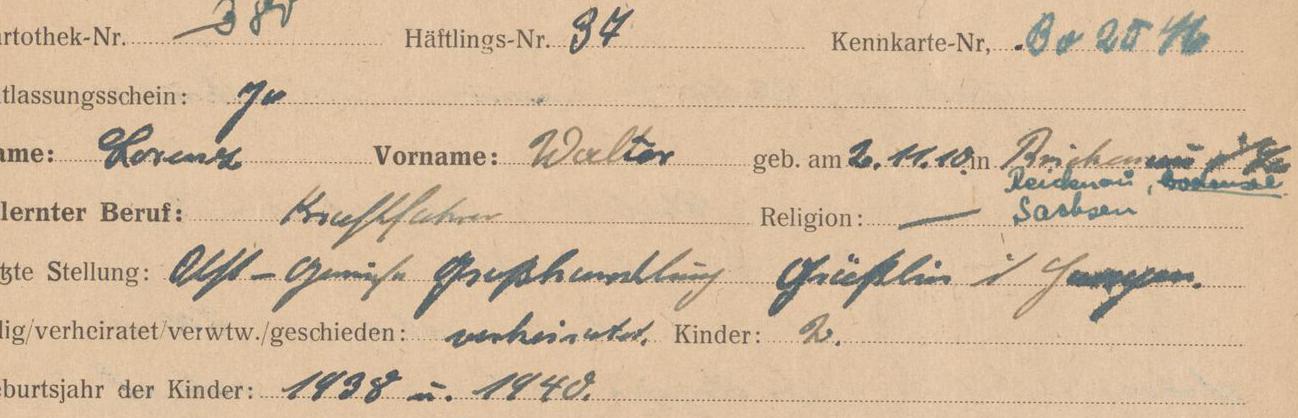 artothek-Nr. 380 Häftlings-Nr. 37 Kennkarte-Nr, Bo 25
tlassungsschein: Ja
ame: Lorenz Vorname: Walter geb. am 2. 11. 10. in Reichenau
Reichenau, Bodensee
Sachsen
lernter Beruf: Kraftfahrer Religion: —
tzte Stellung: Obst-Gemüse Großhandlung i/
dig/verheiratet/verwtw./geschieden: verheiratet. Kinder: 2.
eburtsjahr der Kinder: 1938 u. 1940.